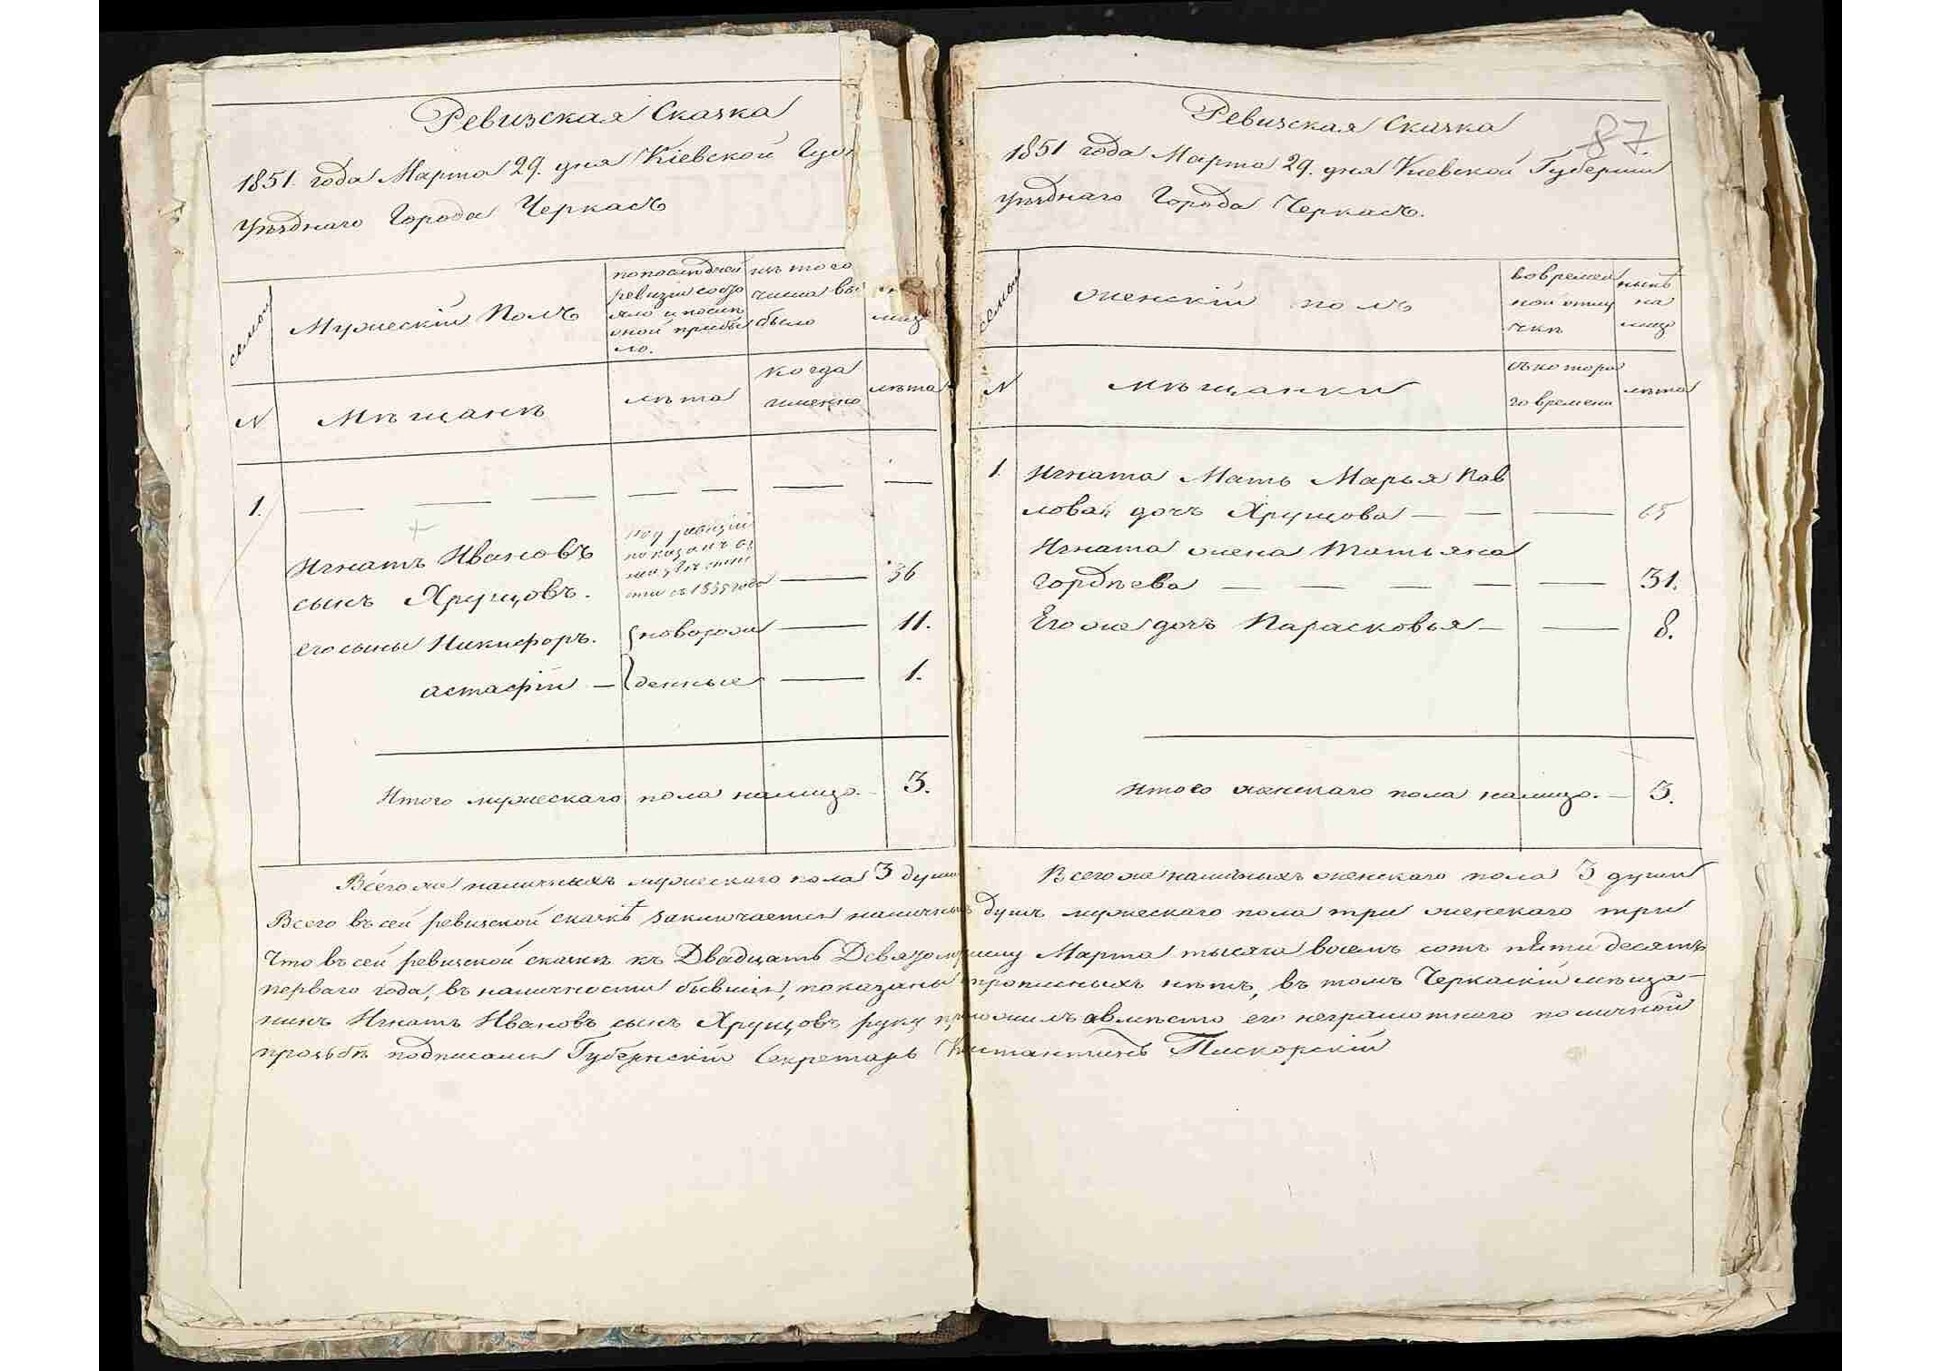 Ревизская Сказка
1851. года Марта 29. дня Кіевской
Уѣзднаго Города Черкасъ
семьи
Мужескій Полъ
попослѣдней
ревизіи состо
яло и послѣ
оной прибы
ло.
изъ того
числа вы
было
лицо
N
Мѣщане
лѣта
когда
именно
лѣта
1.
Игнатъ Ивановъ
сынъ Хрущовъ. 36
его сыны Никифоръ. новорож 11.
астафій денные 1.
Итого мужескаго пола налицо. 3.
Всего же наличныхъ мужескаго пола 3 души
87.
Ревизская Сказка
1851 года Марта 29. дня Кіевской Губерніи
уѣзднаго Города Черкасъ.
семьи
женскій полъ
вовремен
ной отлу
чкѣ
нынѣ
на
лицо
N
мѣщанки
съ котора
го времени
лѣта
1. Игната Мать Марья Пав
лова дочь Хрущова 65
Игната жена Татьяна
Гордѣева 31.
Его же дочь Парасковья 8.
Итого женскаго пола налицо. 3.
Всего же наличныхъ женскаго пола 3 души
Всего въ сей ревизской сказкѣ заключается наличныхъ душъ мужескаго пола три женскаго три
Что въ сей ревизской сказкѣ къ Двадцать Девятому числу Марта тысяча восемь сотъ пятидесятъ
перваго года, въ наличности бывшія, показаны прописныхъ нѣтъ, въ томъ Черкаскій мѣща-
нинъ Игнатъ Ивановъ сынъ Хрущовъ руку приложилъ а вмѣсто его неграмотнаго по личной
прозьбѣ подписалъ Губернскій Секретарь Константинъ Пискорскій